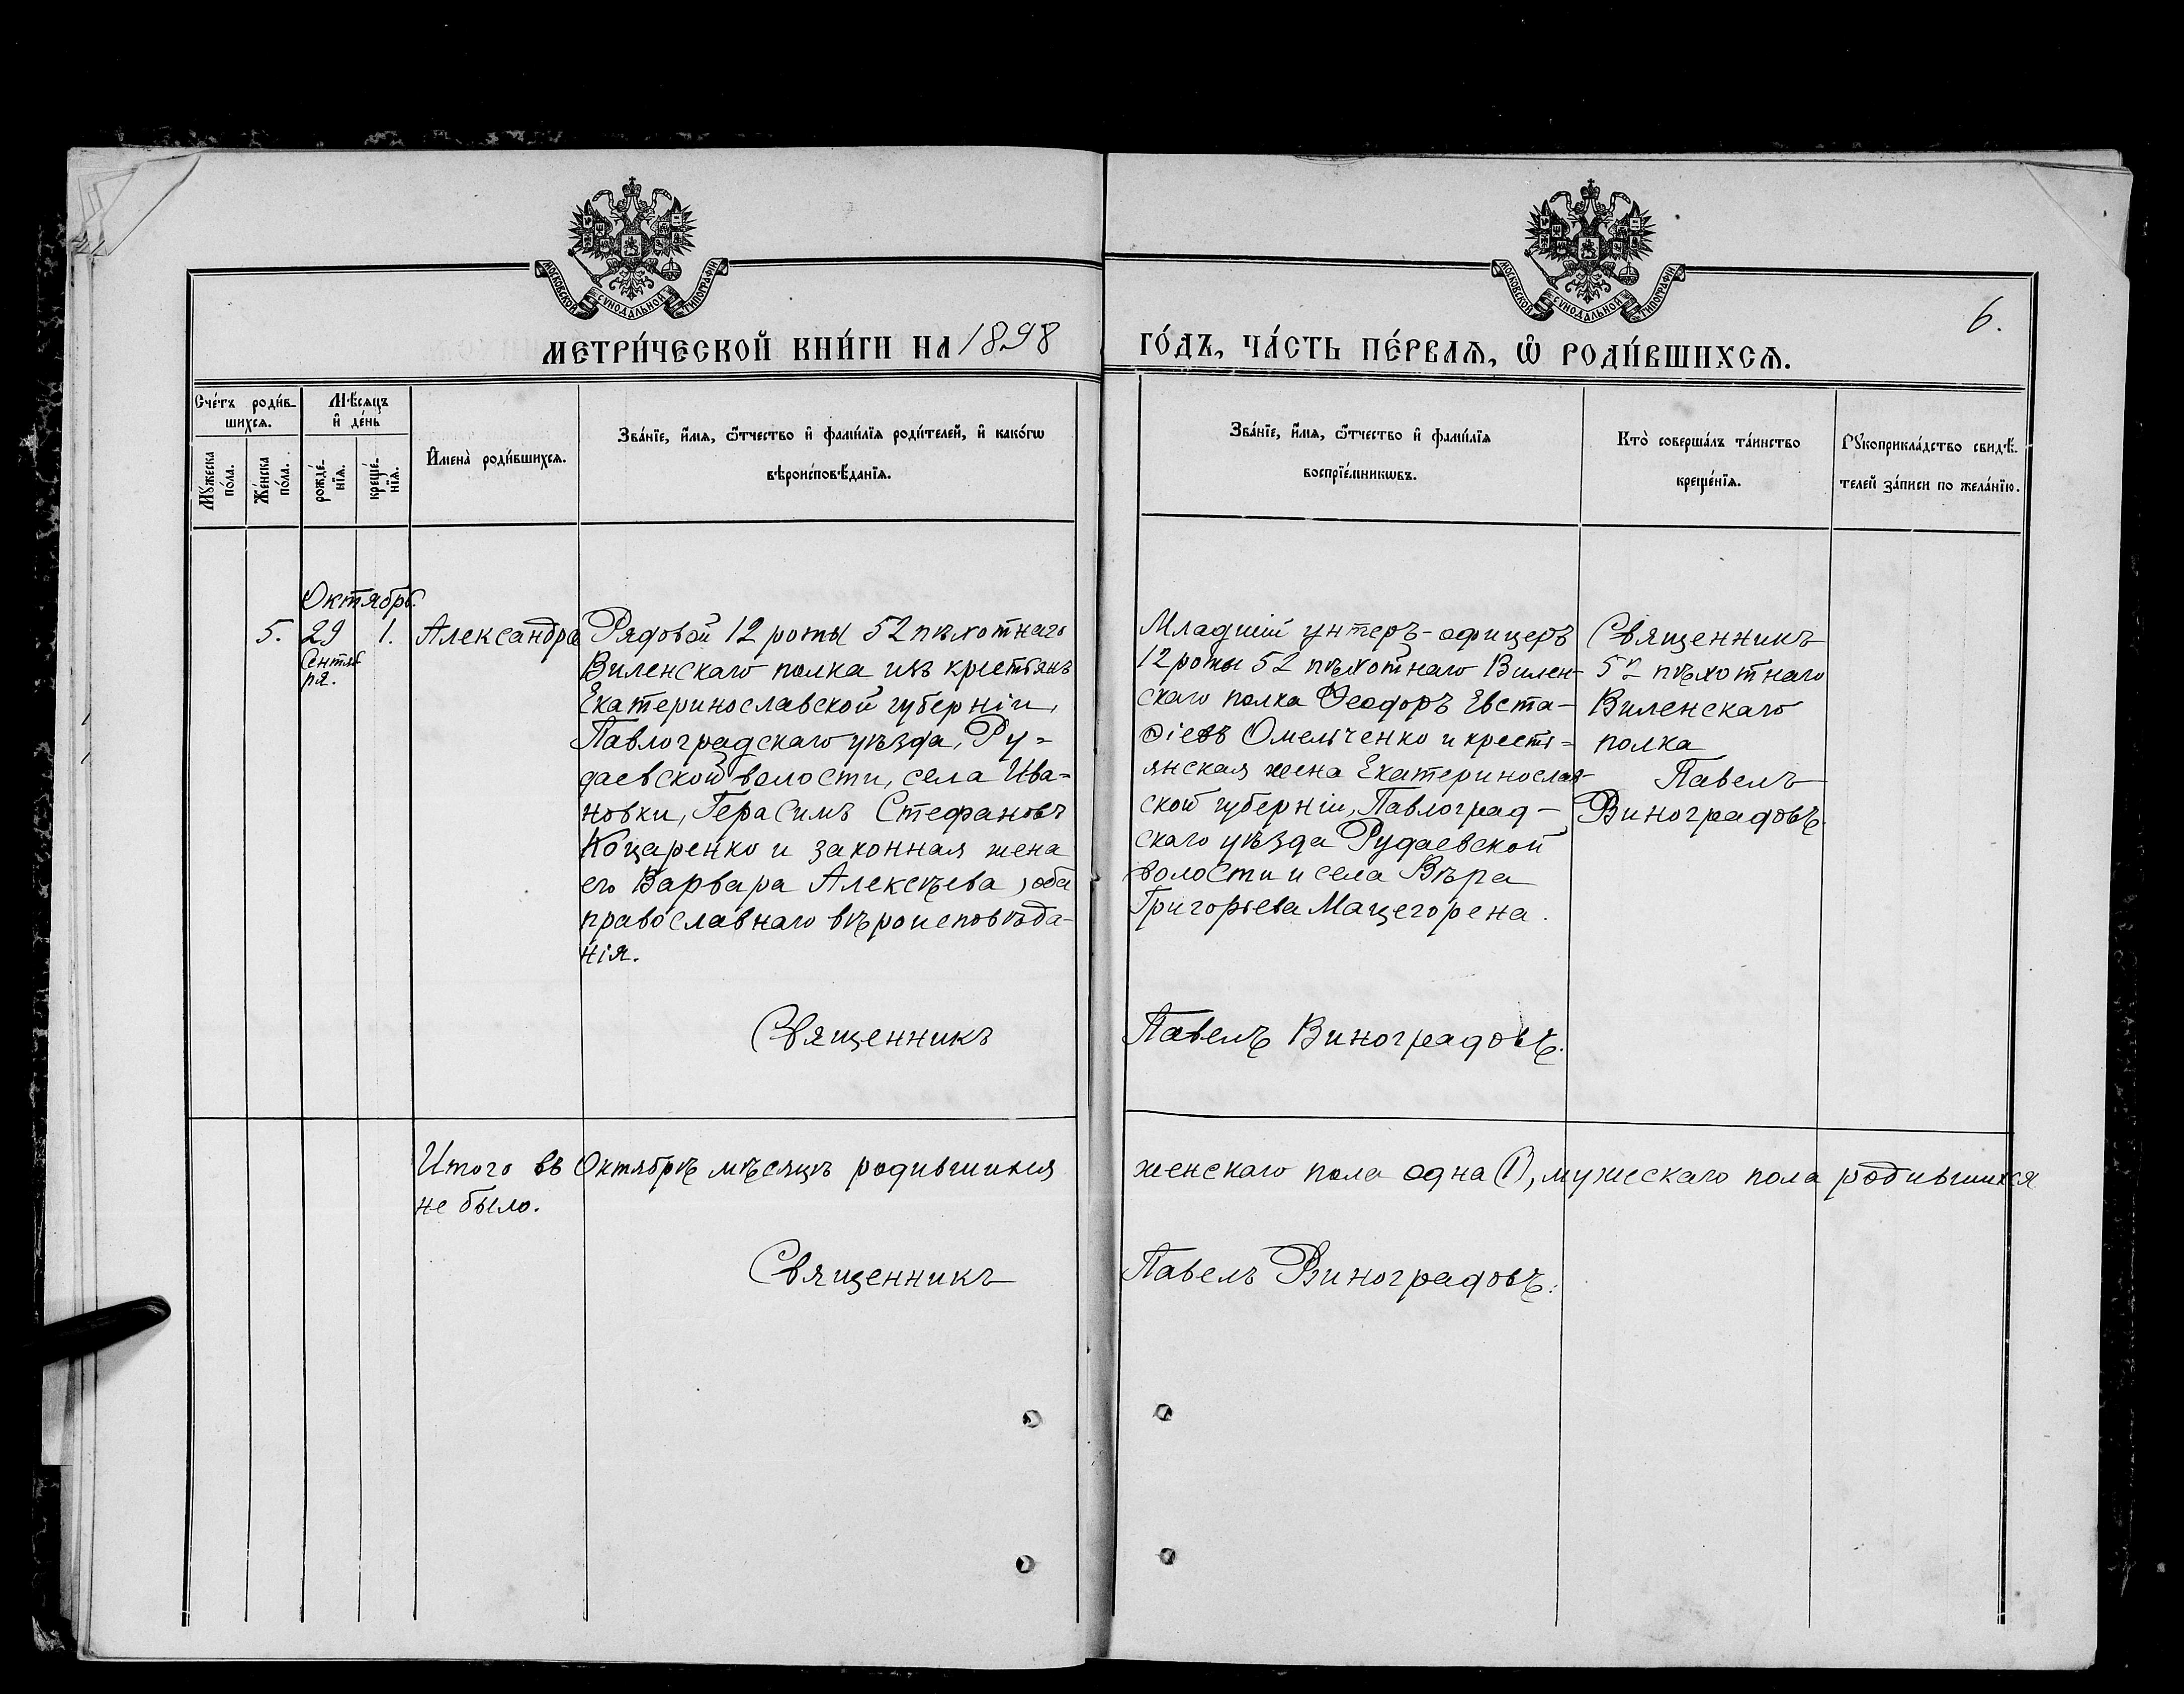 МОСКОВСКОЙ СѴНОДАЛЬНОЙ ТИПОГРАФІИ
МОСКОВСКОЙ СѴНОДАЛЬНОЙ ТИПОГРАФІИ
6.
МЕТРИ́ЧЕСКОЙ КНИ́ГИ НА 1898
ГО́ДЪ, ЧА́СТЬ ПЕ́РВАѦ, Ѡ҆ РОДИ́ВШИХСѦ.
Сче́тъ роди́в-
шихсѧ.
Мꙋ́жеска
по́ла.
Же́нска
по́ла.
Мѣ́сѧцъ
и҆ де́нь
рожде́-
нїѧ.
креще́-
нїѧ.
И҆мена̀ роди́вшихсѧ.
Зва́нїе, и҆́мѧ, ѻ҆́тчество и҆ фами́лїѧ роди́телей, и҆ како́гѡ
вѣроисповѣ́данїѧ.
Зва́нїе, и҆́мѧ, ѻ҆́тчество и҆ фами́лїѧ
воспрїе́мникѡвъ.
Кто̀ соверша́лъ та́инство
креще́нїѧ.
Рꙋкоприкла́дство свидѣ́-
телей за́писи по жела́нїю.
Октябрь.
5. 29 1.
Сентяб
ря.
Александра
Рядовой 12 роты 52 пѣхотнаго
Виленскаго полка изъ крестьянъ
Екатеринославской губерніи,
Павлоградскаго уѣзда, Ру=
даевской волости, села Ива=
новки, Герасимъ Стефановъ
Коцаренко и законная жена
его Варвара Алексѣева, оба
православнаго вѣроисповѣда-
нія.
Священникъ
Младшій унтеръ-офицеръ
12 роты 52 пѣхотнаго Вилен-
скаго полка Ѳеодоръ Евста-
ѳіевъ Омельченко и кресть=
янская жена Екатеринослав-
ской губерніи, Павлоград-
скаго уѣзда Рудаевской
волости и села Вѣра
Григорьева Мацегорена.
Павелъ Виноградовъ.
Священникъ
52 пѣхотнаго
Виленскаго
полка
Павелъ
Виноградовъ.
Итого въ Октябрѣ мѣсяцѣ родившихся
женскаго пола одна (1), мужескаго пола родившихся
не было.
Священникъ
Павелъ Виноградовъ.